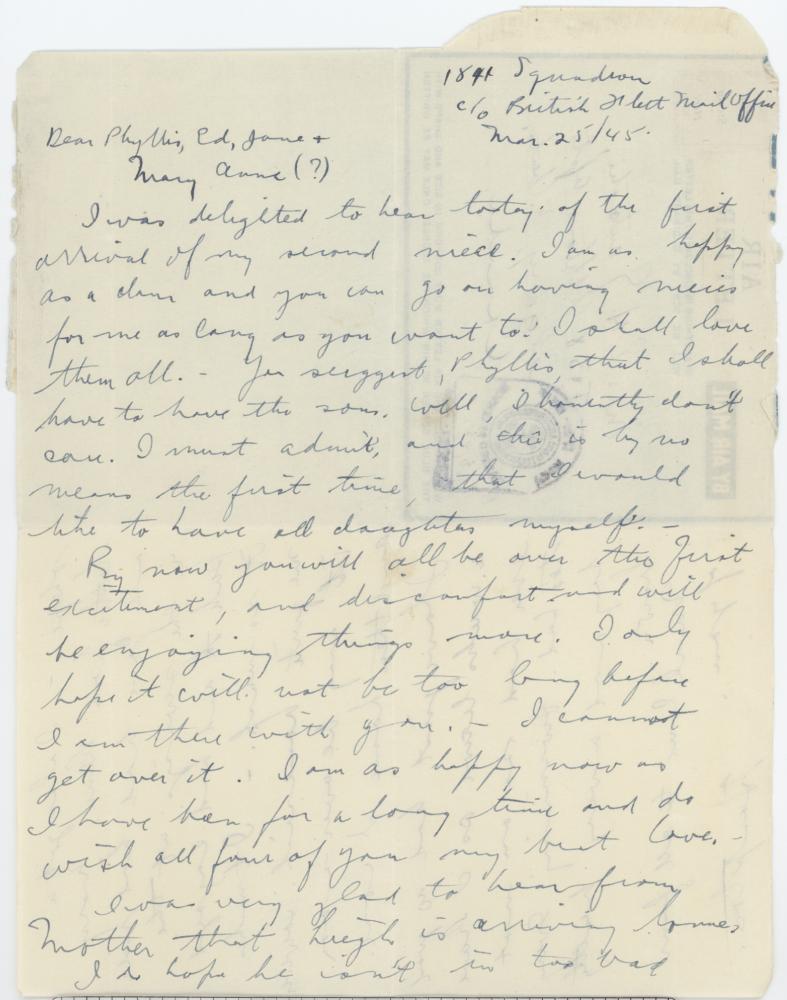 1841 Squadron
c/o British Fleet Mail Office
Mar. 25/45.
Dear Phyllis, Ed, Jane +
Mary Anne (?)
I was delighted to hear today of the first
arrival of my second niece. I am as happy
as a clam and you can go on having nieces
for me as long as you want to. I shall love
them all. - You suggest, Phyllis, that I shall
have to have the sons. Well, I honestly don't
care. I must admit, and this is by no
means the first time, that I would
like to have all daughters myself. -
By now you will all be over the first
excitement, and discomfort and will
be enjoying things more. I only
hope it will not be too long before
I am there with you. - I cannot
get over it. I am as happy now as
I have been for a long time and do
wish all four of you my best love. -
I was very glad to hear from
Mother that Hugh is arriving home
I do hope he isn't in too bad
BY AIR MAIL
AIR